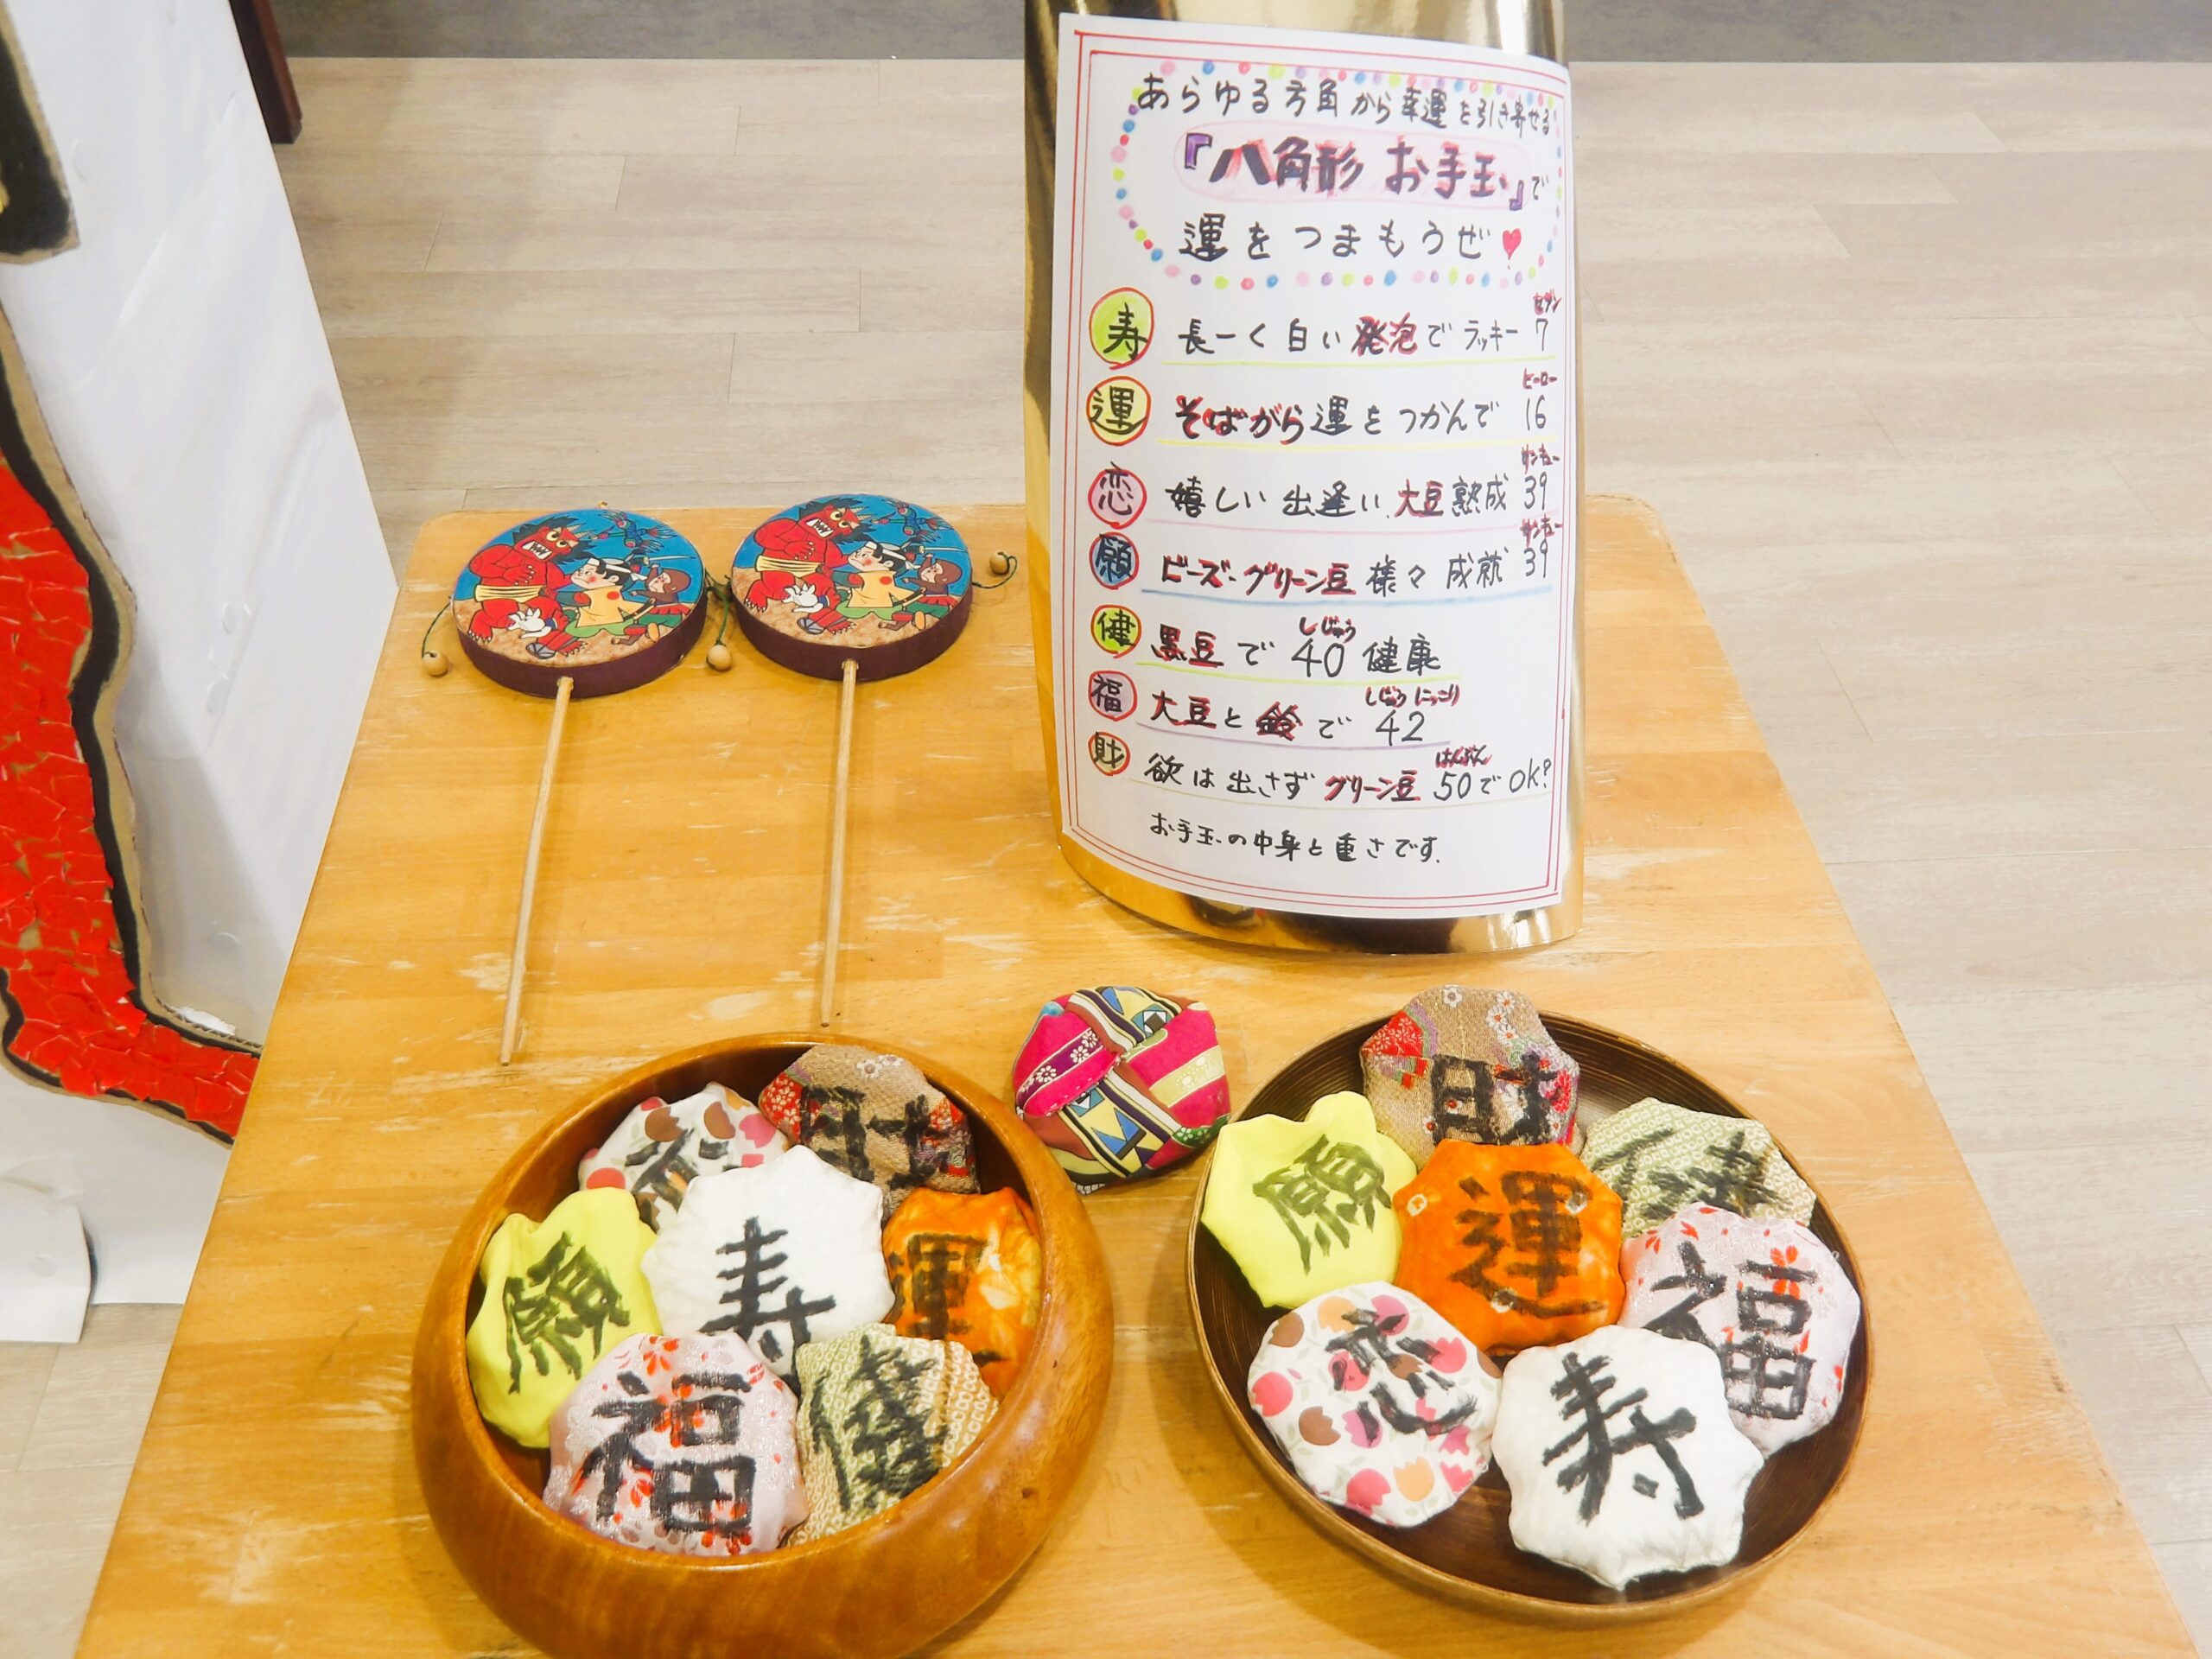 あらゆる方角から幸運を引き寄せる
『八角形 お手玉』で
運をつまもうぜ
セブン
寿 長ーく白い発泡でラッキー7
ヒーロー
運 そばがら運をつかんで 16
サンキュー
恋 嬉しい出逢い、大豆熟成 39
サンキュー
願 ビーズ・グリーン豆 様々成就 39
しじゅう
健 黒豆で 40 健康
しじゅうにっこり
福 大豆と鈴で 42
はんぶん
財 欲は出さずグリーン豆 50でOK?
お手玉の中身と重さです.
恋
財
願
寿
運
福
健
財
願
運
健
福
恋
寿